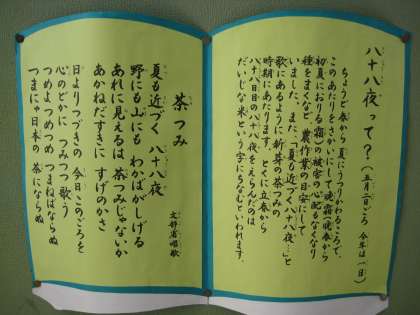 八十八夜って?(五月二日ごろ 今年は一日)
ちょうど春から夏にうつりかわるころで、
このあたりをさかいにして晩霜(晩春から
初夏におりる霜)の被害の心配もなくなり
種をまくなど、農作業の目安にして
いました。また、「夏も近づく八十八夜…」と
歌にあるように新芽の茶つみの
時期にあたります。とくに立春から
八十八日目の八十八夜をえらんだのは
だいじな米という字にちなむといわれます。
茶つみ
文部省唱歌
夏も近づく 八十八夜
野にも山にも わかばがしげる
あれに見えるは 茶つみじゃないか
あかねだすきに すげのかさ
日よりつづきの 今日このごろを
心のどかに つみつつ歌う
つめよ つめつめ つまねばならぬ
つまにゃ日本の 茶にならぬ